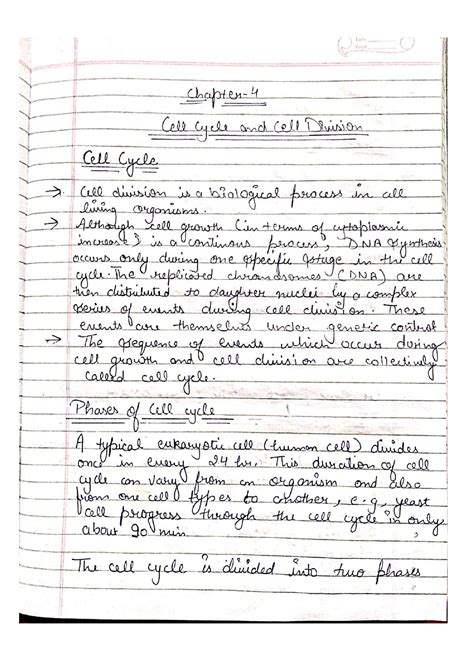 Chapter-4
Cell Cycle and Cell Division
Cell Cycle
→ Cell division is a biological process in all
living organisms.
→ Although cell growth (in terms of cytoplasmic
increase) is a continous process, DNA synthesis
occurs only during one specific stage in the cell
cycle. The replicated chromosomes (DNA) are
then distributed to daughter nuclei by a complex
series of events during cell division. These
events are themselves under genetic control
→ The sequence of events which occur during
cell growth and cell division are collectively
called cell cycle.
Phases of Cell cycle
A typical eukaryotic cell (human cell) divides
once in every 24 hr. This duration of cell
cycle can vary from an organism and also
from one cell types to another, e.g, yeast
cell progress through the cell cycle in only
about 90 min
The cell cycle is divided into two phases